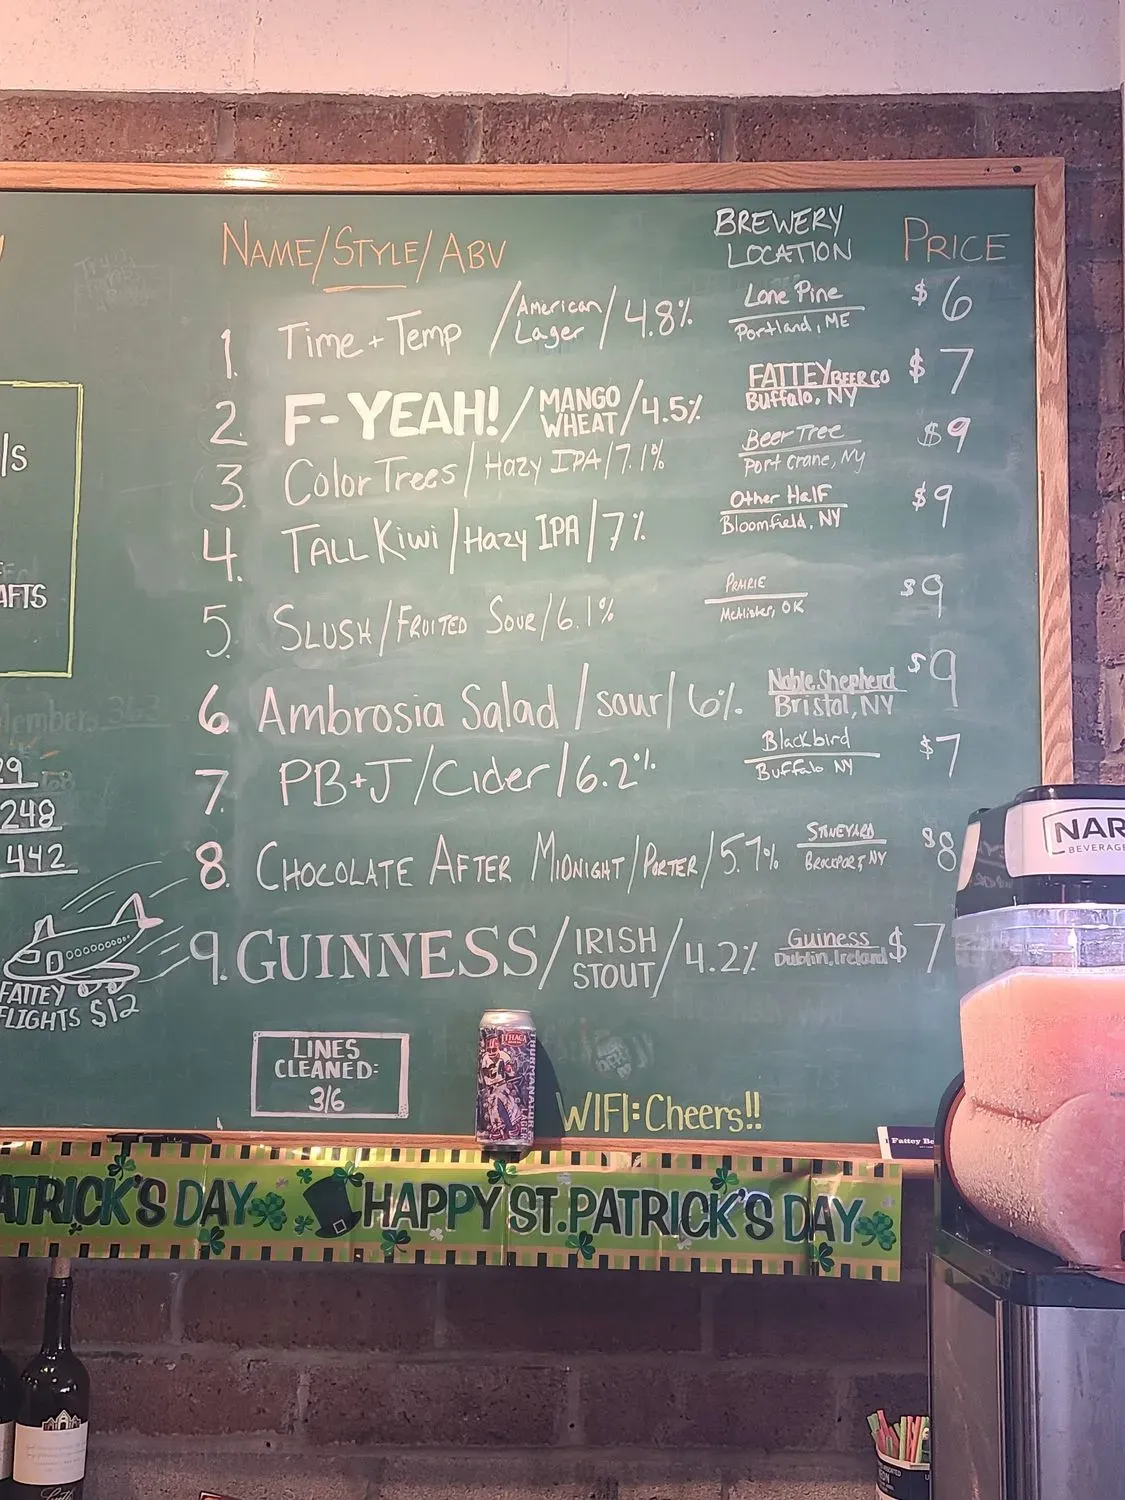 NAME/STYLE/ABV
BREWERY
LOCATION
PRICE
1. Time + Temp / American Lager / 4.8% Lone Pine Portland, ME $6
2. F-YEAH! / MANGO WHEAT / 4.5% FATTEY BEER CO Buffalo, NY $7
3. Color Trees / Hazy IPA / 7.1% Beer Tree Port Crane, Ny $9
4. TALL Kiwi / Hazy IPA / 7% Other Half Bloomfield, NY $9
5. SLUSH / FRUITED SOUR / 6.1% PRAIRIE McAlister, OK $9
6. Ambrosia Salad / sour / 6% Noble Shepherd Bristol, NY $9
7. PB+J / Cider / 6.2% Blackbird Buffalo NY $7
8. CHOCOLATE AFTER MIDNIGHT / PORTER / 5.7% STONEYARD BROCKPORT, NY $8
9. GUINNESS / IRISH STOUT / 4.2% Guiness Dublin, Ireland $7
/s
AFTS
Members
29
248
442
FATTEY
FLIGHTS $12
LINES
CLEANED:
3/6
ITHACA
WIFI: Cheers!!
Fattey Be
NAR
BEVERAGE
ATRICK'S DAY HAPPY ST. PATRICK'S DAY